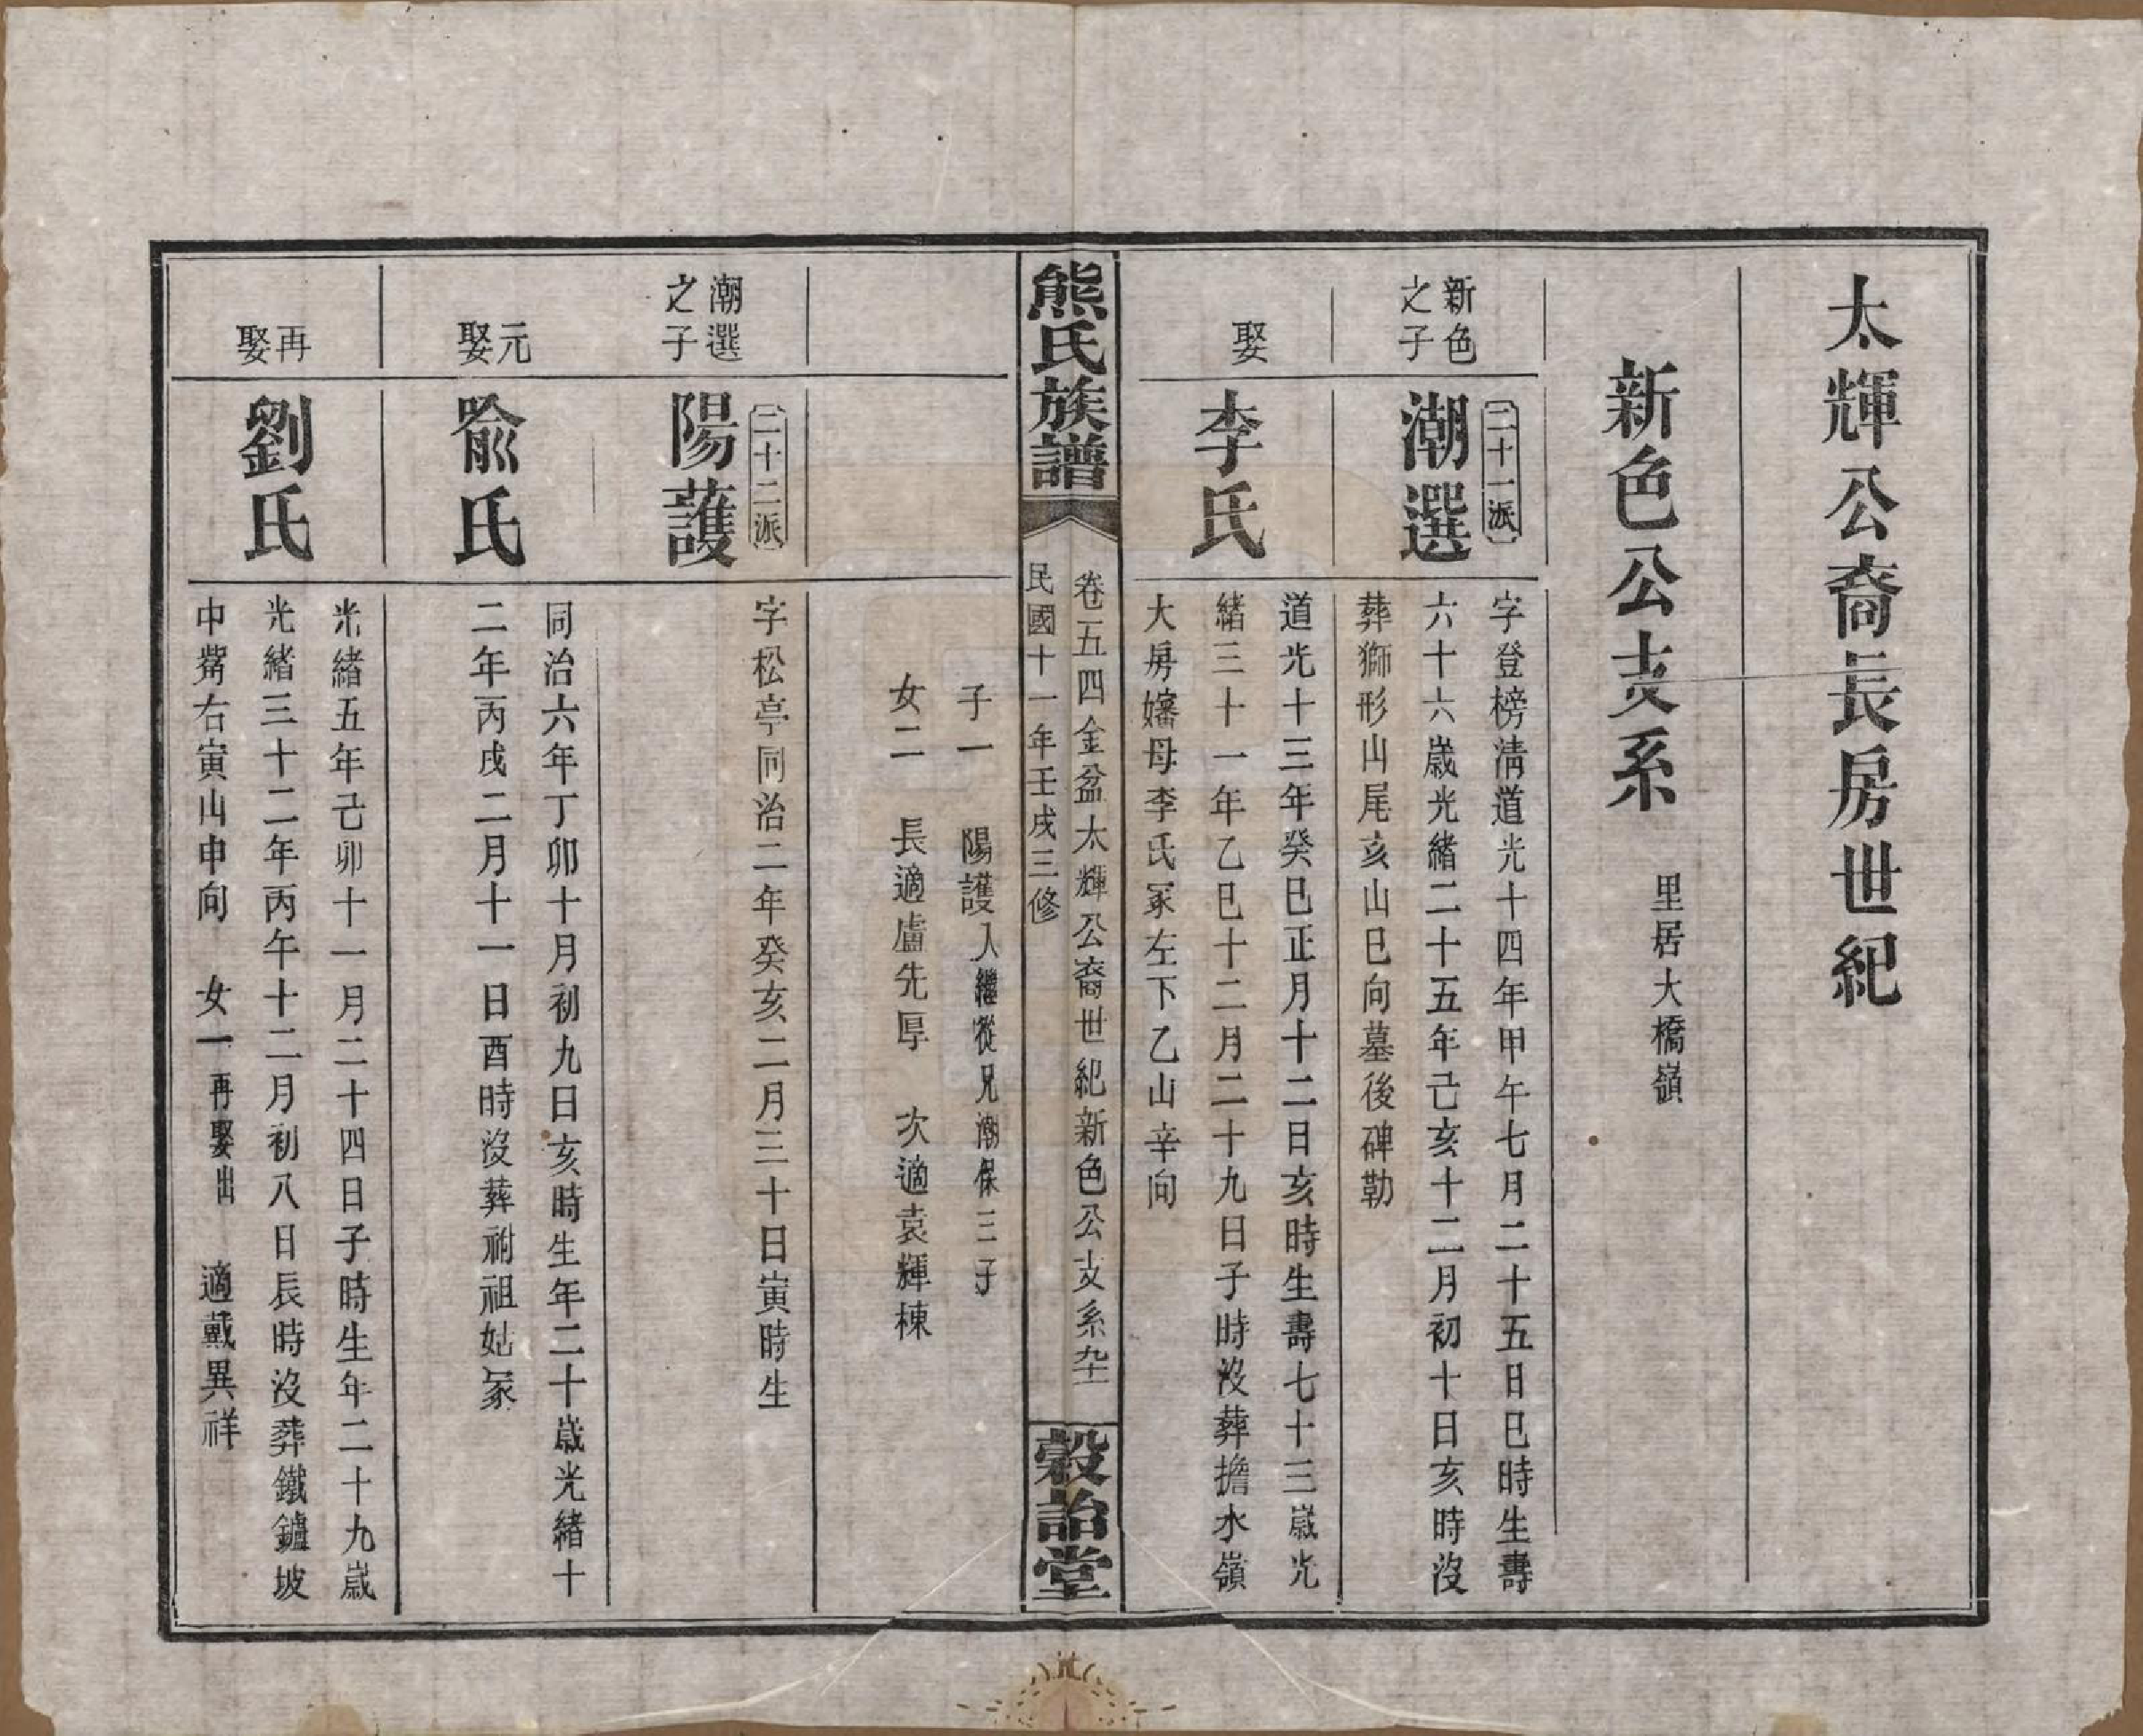 太輝公裔長房世紀
新色公支系
里居大橋嶺
新色
之子
二十一派
潮選
字登榜淸道光十四年甲午七月二十五日巳時生壽
六十六歲光緒二十五年己亥十二月初十日亥時沒
葬獅形山尾亥山巳向墓後碑勒
娶
李氏
道光十三年癸巳正月十二日亥時生壽七十三歲光
緒三十一年乙巳十二月二十九日子時沒葬擔水嶺
大房嬸母李氏冢左下乙山辛向
熊氏族譜
卷五四金盆太輝公裔世紀新色公支系九十一
民國十一年壬戌三修
穀詒堂
子一 陽護 入繼從兄潮保三子
女二 長適盧先厚 次適袁輝棟
潮選
之子
二十二派
陽護
字松亭同治二年癸亥二月三十日寅時生
元
娶
兪氏
同治六年丁卯十月初九日亥時生年二十歲光緒十
二年丙戌二月十一日酉時沒葬祔祖姑冢
再
娶
劉氏
光緒五年己卯十一月二十四日子時生年二十九歲
光緒三十二年丙午十二月初八日長時沒葬鐵鑪坡
中嘴右寅山申向 女一 再娶出 適戴異祥